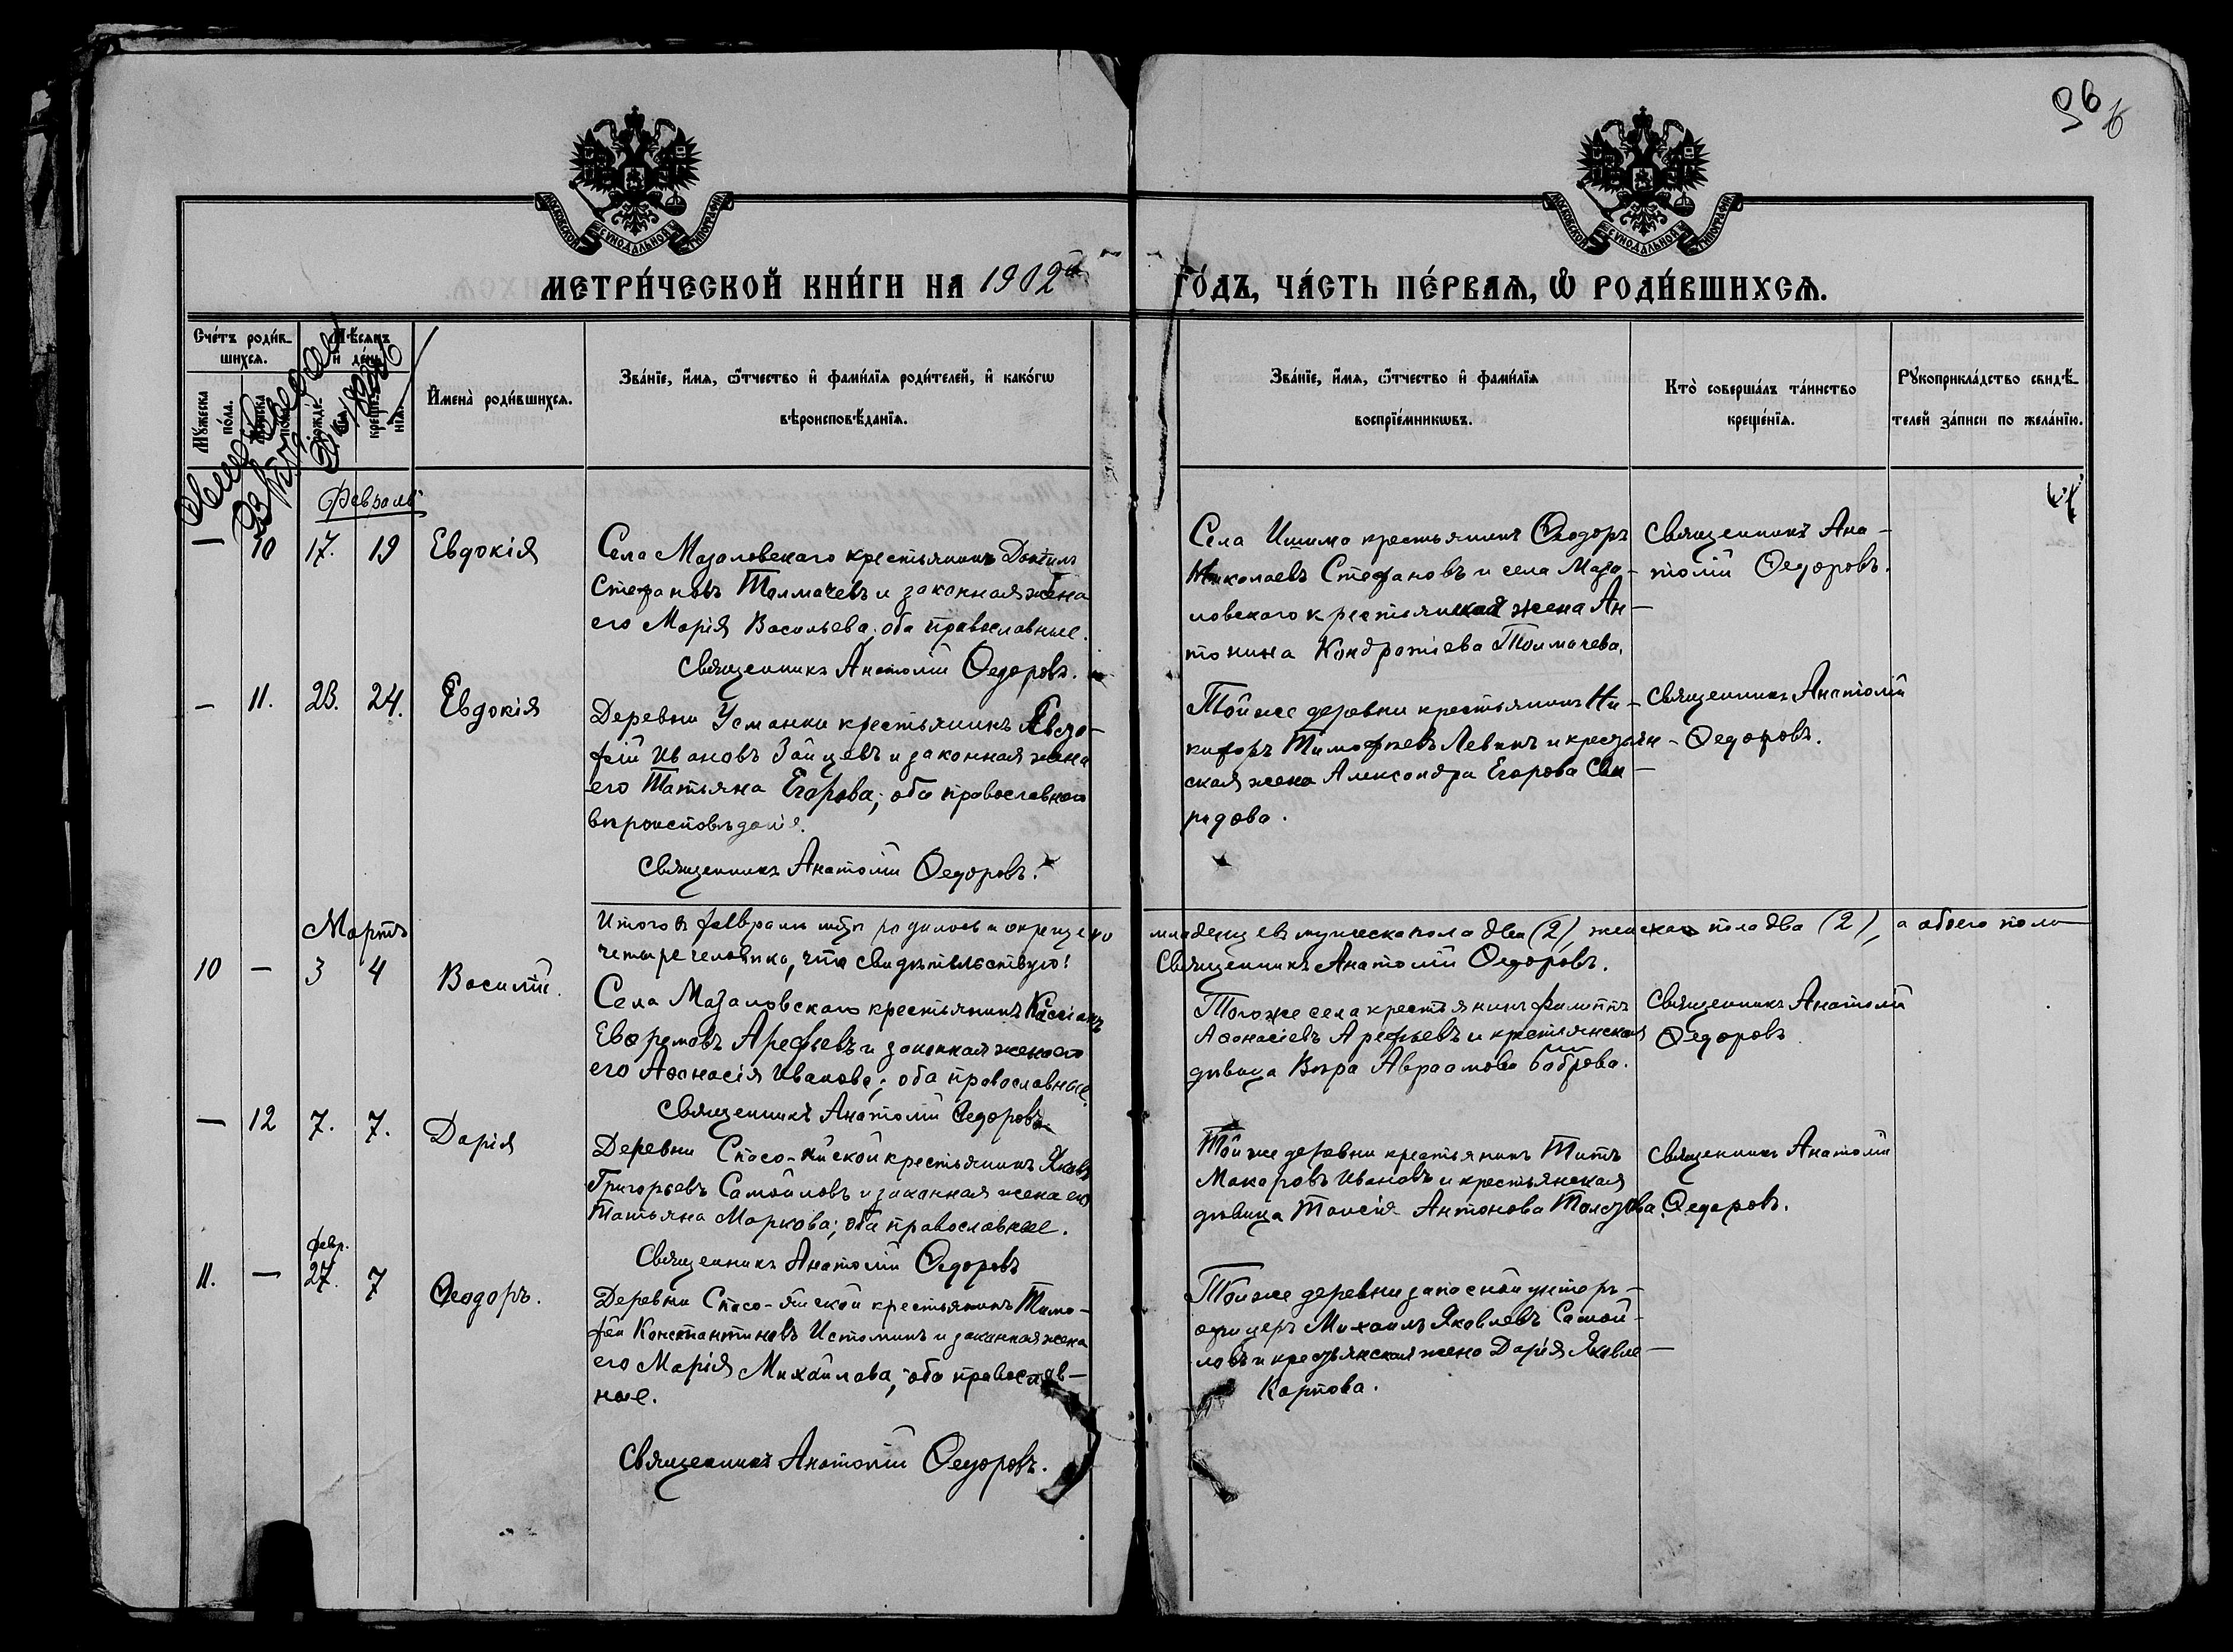 96
МОСКОВСКОЙ СѴНОДАЛЬНОЙ ТИПОГРАФІИ
МОСКОВСКОЙ СѴНОДАЛЬНОЙ ТИПОГРАФІИ
МЕТРИ́ЧЕСКОЙ КНИ́ГИ НА 1902й ГО́ДЪ, ЧА́СТЬ ПЕ́РВАѦ, Ѡ҆ РОДИ́ВШИХСѦ.
Сче́тъ роди́в-
шихсѧ.
Мѣ́сѧцъ
и де́нь
Мꙋ́жеска
по́ла.
Же́нска
по́ла.
рожде́-
нїѧ.
креще́-
нїѧ.
И҆мена̀ роди́вшихсѧ.
Зва́нїе, и҆́мѧ, ѻ҆́тчество и҆ фами́лїѧ роди́телей, и҆ како́гѡ
вѣроисповѣ́данїѧ.
Зва́нїе, и҆́мѧ, ѻ҆́тчество и҆ фами́лїѧ
воспрїе́мникѡвъ.
Кто̀ соверша́лъ та́инство
креще́нїѧ.
Рꙋкоприкла́дство свидѣ́-
телей за́писи по жела́нїю.
Февраль
— 10 17. 19 Евдокія
Села Мазаловскаго крестьянинъ
Стефановъ Толмачевъ и законная жена
его Марія Васильева; оба православные.
Священникъ Анатолій Ѳедоровъ.
Села Ишима крестьянинъ Ѳеодоръ
Николаевъ Стефановъ и села Маза-
ловскаго крестьянская жена Ан-
тонина Кондратіева Толмачева.
Священникъ Ана-
толій Ѳедоровъ.
— 11. 23. 24. Евдокія
Деревни Усманки крестьянинъ Евдо-
фій Ивановъ Зайцевъ и законная жена
его Татьяна Егорова; оба православнаго
вѣроисповѣданія.
Священникъ Анатолій Ѳедоровъ.
Той же деревни крестьянинъ Ни-
кифоръ Тимофѣевъ Левинъ и крестьян-
ская жена Александра Егорова Сви-
ридова.
Священникъ Анатолій
Ѳедоровъ.
Итого въ февралѣ мцѣ родилось и окрещено младенцевъ мужеска пола два (2), женскаго пола два (2), а обоего пола
четыре человѣка, что свидѣтельствую: Священникъ Анатолій Ѳедоровъ.
Мартъ
10 — 3 4 Василій.
Села Мазаловскаго крестьянинъ Кассіанъ
Евфремовъ Арефьевъ и законная жена его
его Аѳанасія Иванова; оба православные.
Священникъ Анатолій Ѳедоровъ
Того же села крестьянинъ Филиппъ
Аѳанасіевъ Арефьевъ и крестьянская
дѣвица Вѣра Авраамова Боброва.
Священникъ Анатолій
Ѳедоровъ
— 12 7. 7. Дарія
Деревни Спасо-Яйской крестьянинъ Яковъ
Григорьевъ Самойловъ и законная жена его
Татьяна Маркова; оба православные.
Священникъ Анатолій Ѳедоровъ
Той же деревни крестьянинъ Титъ
Макаровъ Ивановъ и крестьянская
дѣвица Таисія Антонова
Священникъ Анатолій
Ѳедоровъ.
февр.
11. — 27. 7 Ѳеодоръ.
Деревни Спасо-Яйской крестьянинъ Тимо-
фей Константиновъ Истоминъ и законная жена
его Марія Михайлова; оба православ-
ные.
Священникъ Анатолій Ѳедоровъ.
Той же деревни запасной унтеръ-
офицеръ Михаилъ Яковлевъ Самой-
ловъ и крестьянская жена Дарія Яковле-
Карпова.